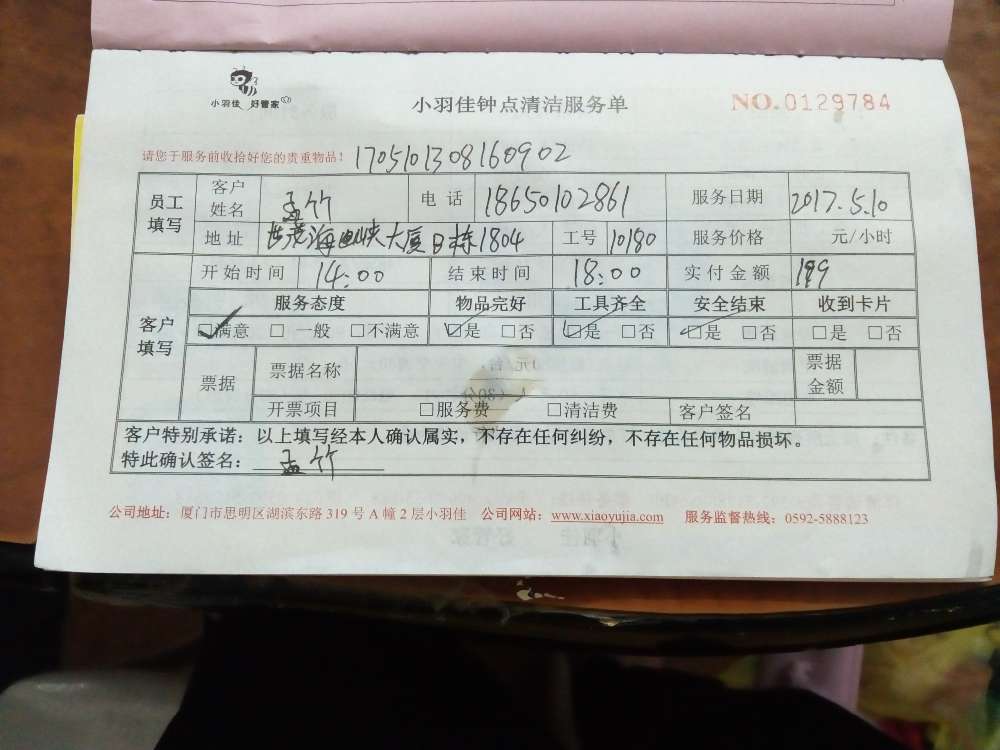 小羽佳 好管家
小羽佳钟点清洁服务单
NO.0129784
请您于服务前收拾好您的贵重物品! 170510130816090２
员工填写 客户姓名 孟竹 电话 18650102861 服务日期 2017.5.10
地址 世茂海峡大厦B栋1804 工号 10180 服务价格 元/小时
客户填写 开始时间 14:00 结束时间 18:00 实付金额 199
服务态度 物品完好 工具齐全 安全结束 收到卡片
☑满意 □一般 □不满意 ☑是 □否 ☑是 □否 ☑是 □否 □是 □否
票据 票据名称 票据金额
开票项目 □服务费 □清洁费 客户签名
客户特别承诺：以上填写经本人确认属实，不存在任何纠纷，不存在任何物品损坏。
特此确认签名：孟竹
公司地址：厦门市思明区湖滨东路 319 号 A 幢 2 层小羽佳 公司网站：www.xiaoyujia.com 服务监督热线：0592-5888123